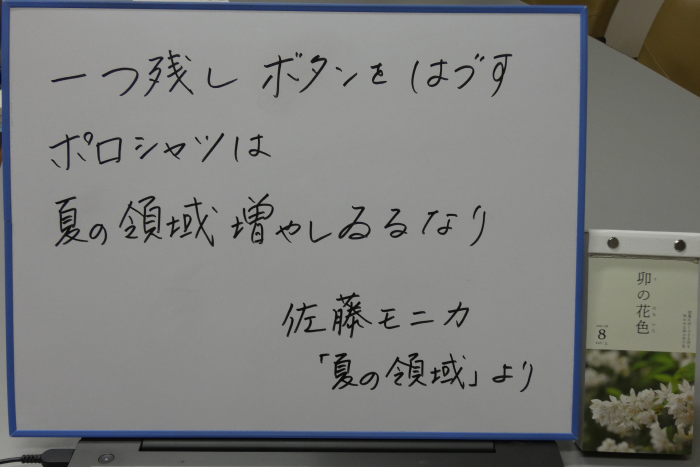 一つ残し ボタンを はづす
ポロシャツは
夏の領域 増やしゐるなり
佐藤モニカ
「夏の領域」より
卯の花色
8